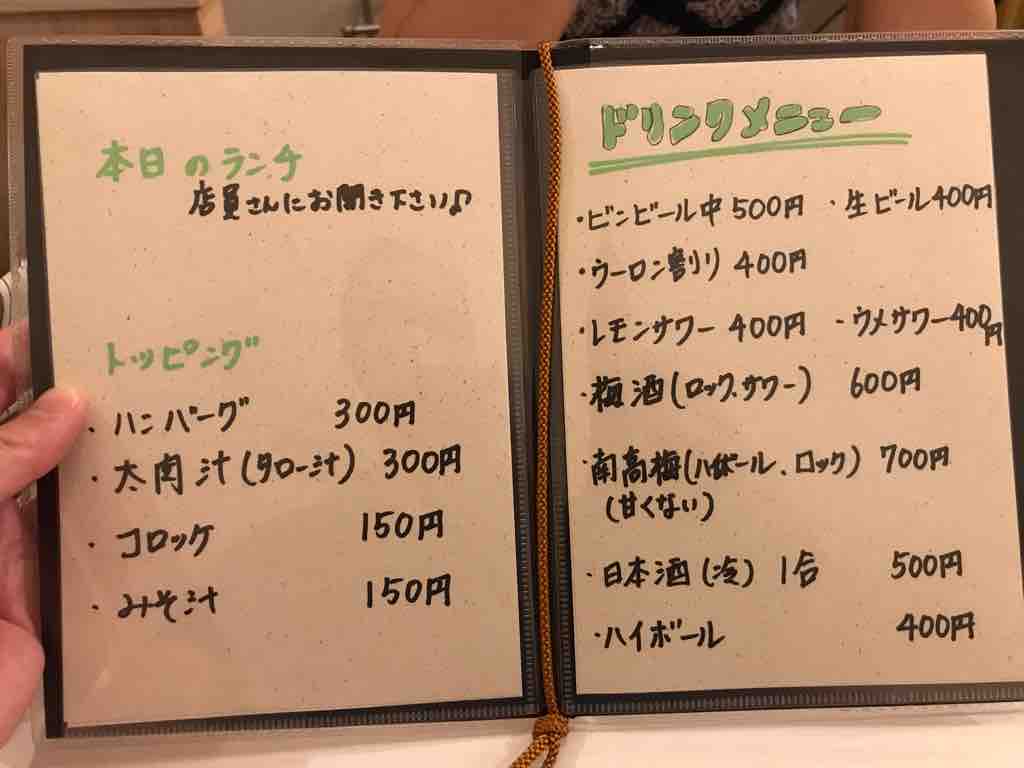 本日のランチ
店員さんにお聞き下さい♪
トッピング
・ハンバーグ 300円
・太肉汁(タロー汁) 300円
・コロッケ 150円
・みそ汁 150円
ドリンクメニュー
・ビンビール中 500円 ・生ビール 400円
・ウーロン割り 400円
・レモンサワー 400円 ・ウメサワー 400円
・梅酒(ロック.サワー) 600円
・南高梅(ハイボール.ロック) 700円
(甘くない)
・日本酒(冷) 1合 500円
・ハイボール 400円